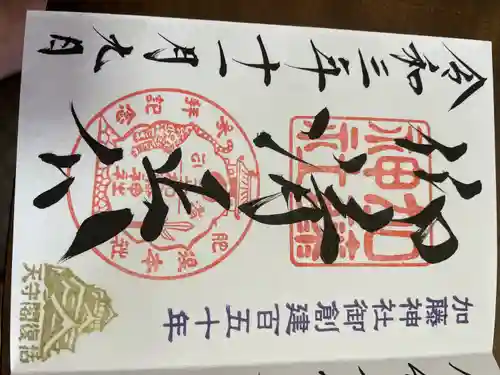 加藤神社御創建百五十年
加藤神社
清正公
令和三年十一月九日
記念
天守閣復活